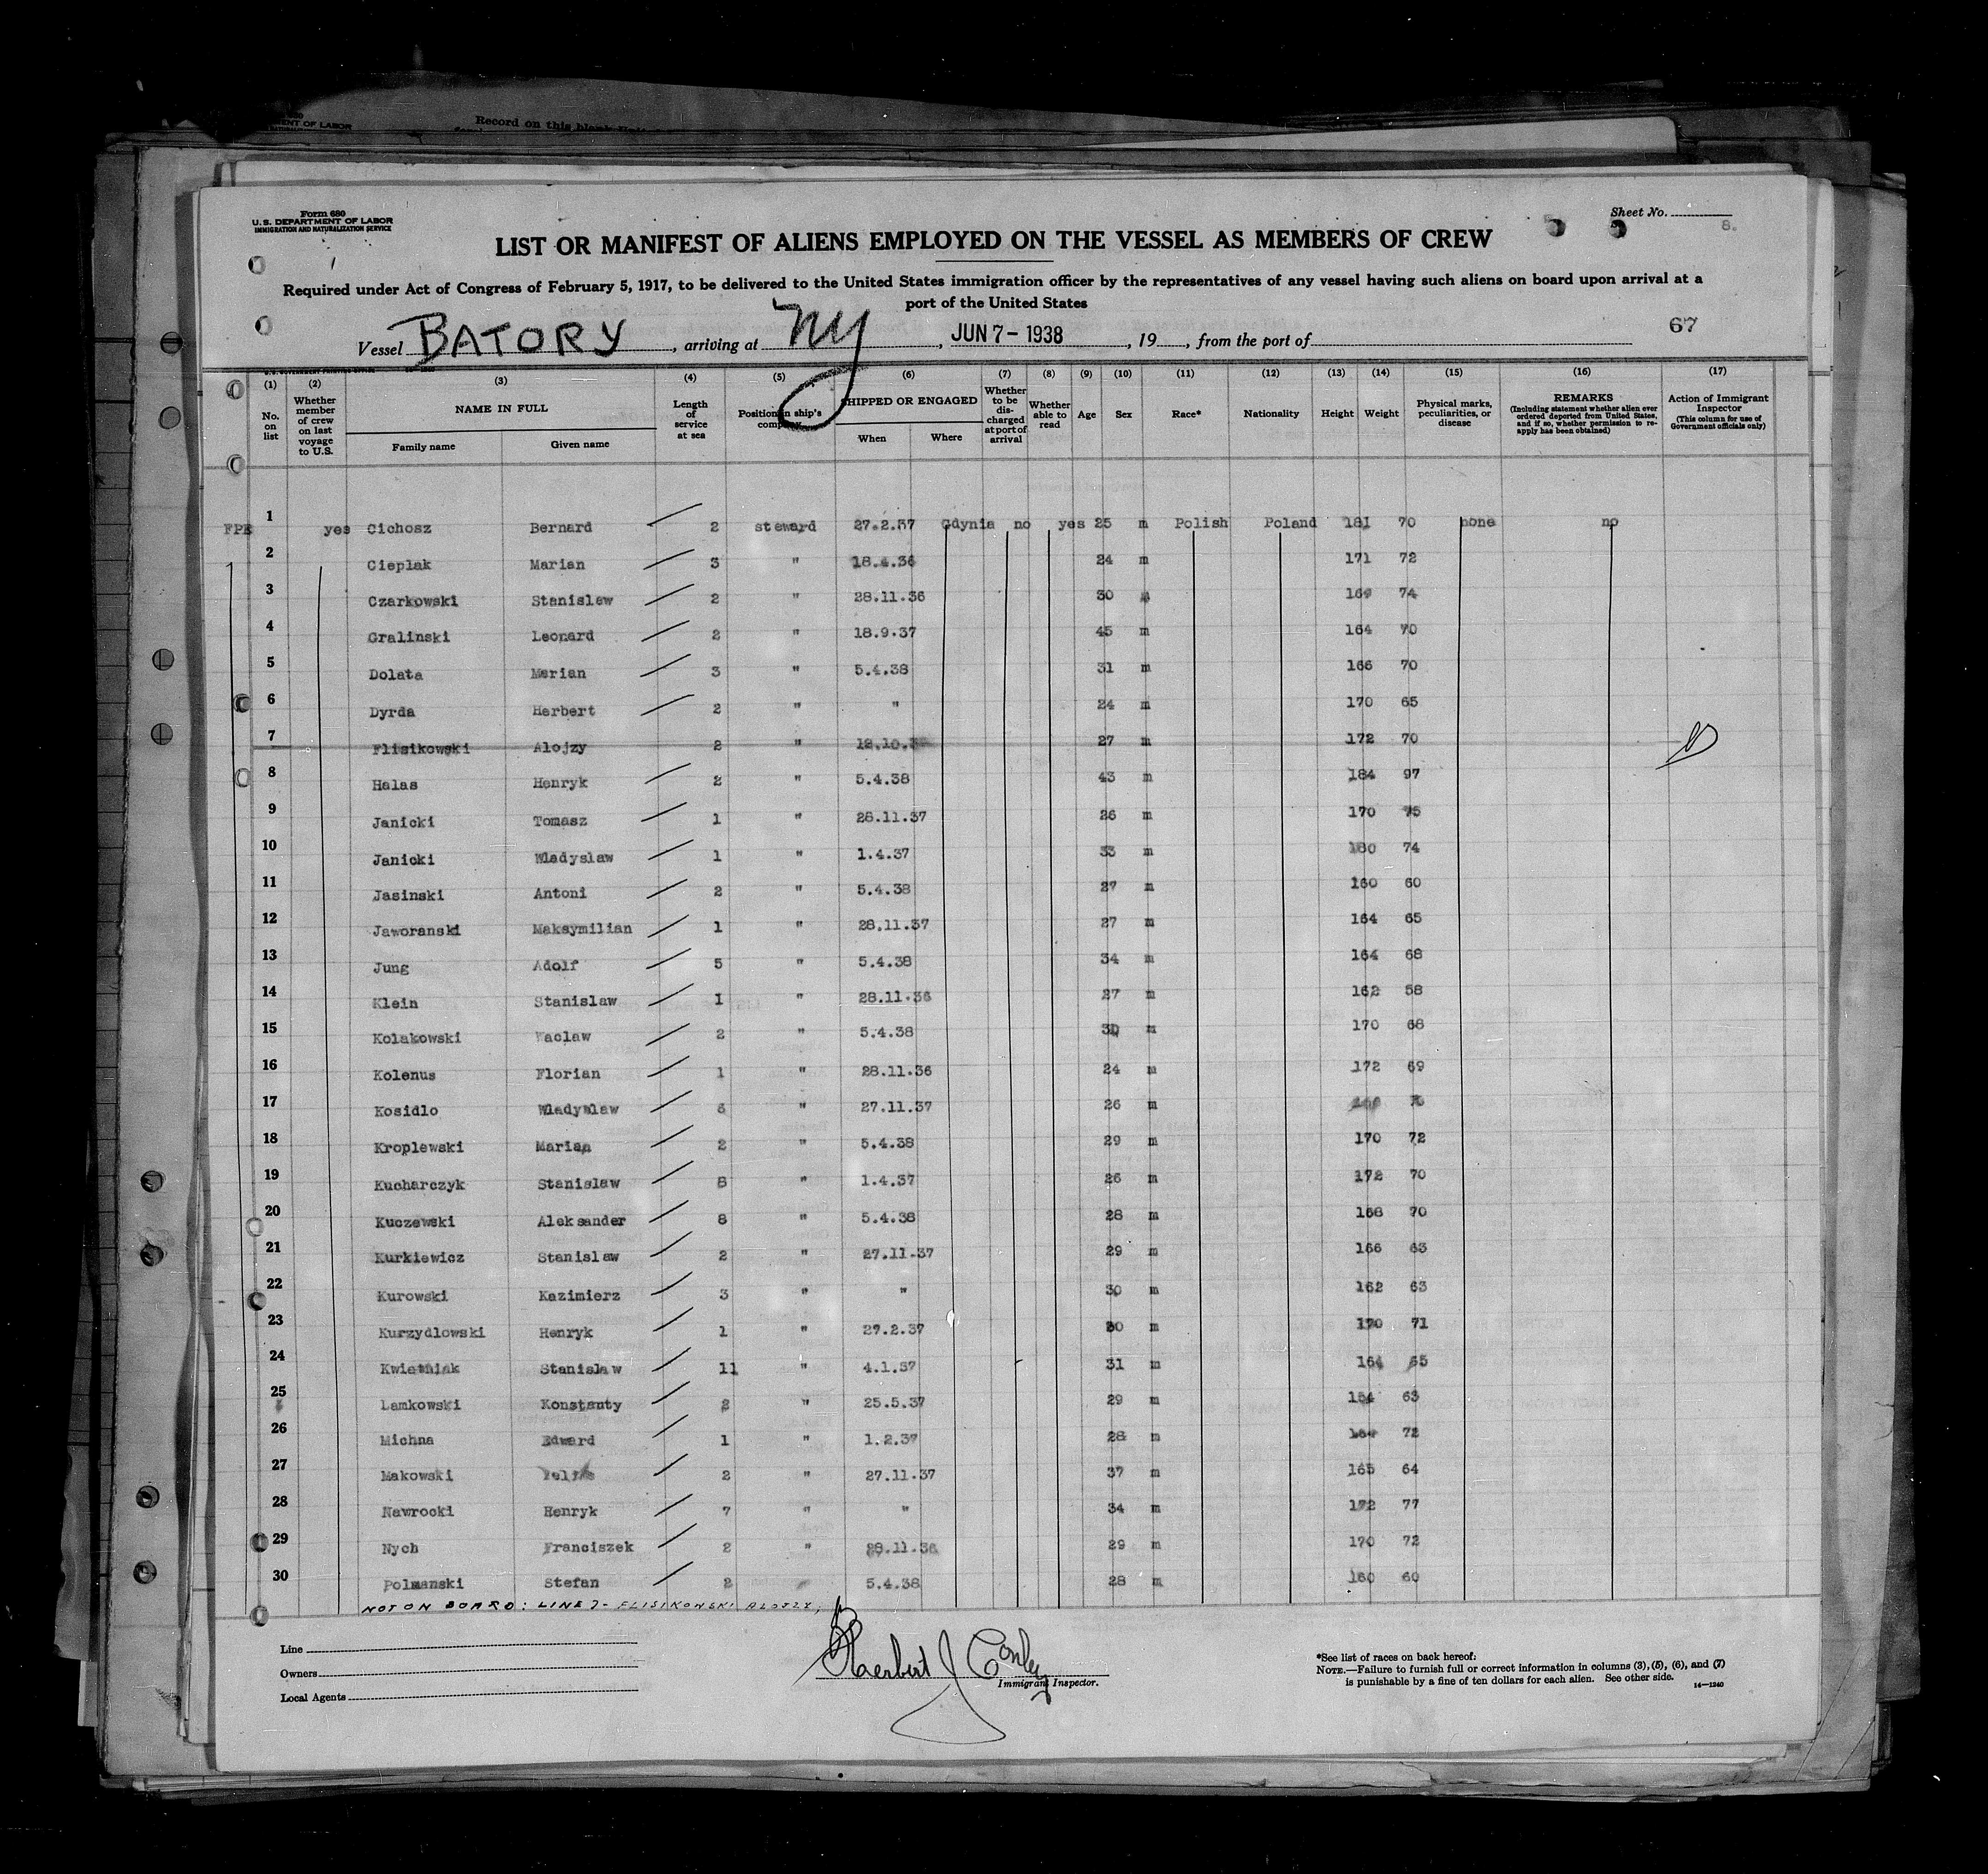 Record on this blank
MENT OF LABOR
Form 680
U. S. DEPARTMENT OF LABOR
IMMIGRATION AND NATURALIZATION SERVICE
Sheet No.
8.
LIST OR MANIFEST OF ALIENS EMPLOYED ON THE VESSEL AS MEMBERS OF CREW
Required under Act of Congress of February 5, 1917, to be delivered to the United States immigration officer by the representatives of any vessel having such aliens on board upon arrival at a
port of the United States
67
Vessel BATORY, arriving at NY, JUN 7 - 1938, 19, from the port of
(1) (2) (3) (4) (5) (6) (7) (8) (9) (10) (11) (12) (13) (14) (15) (16) (17)
No. on list
Whether member of crew on last voyage to U.S.
NAME IN FULL
Family name Given name
Length of service at sea
Position in ship's company
SHIPPED OR ENGAGED
When Where
Whether to be discharged at port of arrival
Whether able to read
Age Sex Race* Nationality Height Weight
Physical marks, peculiarities, or disease
REMARKS
(Including statement whether alien ever ordered deported from United States, and if so, whether permission to re-apply has been obtained)
Action of Immigrant Inspector
(This column for use of Government officials only)
1 FPE yes Cichosz Bernard 2 steward 27.2.37 Gdynia no yes 25 m Polish Poland 181 70 none no
2 Cieplak Marian 3 " 18.4.36 24 m 171 72
3 Czarkowski Stanislaw 2 " 28.11.36 30 m 74
4 Gralinski Leonard 2 " 18.9.37 45 m 164 70
5 Dolata Marian 3 " 5.4.38 31 m 166 70
6 Dyrda Herbert 2 " " 24 m 170 65
7 Flisikowski Alojzy 2 " 27 m 172 70
8 Halas Henryk 2 " 5.4.38 43 m 184 97
9 Janicki Tomasz 1 " 28.11.37 26 m 170 75
10 Janicki Wladyslaw 1 " 1.4.37 33 m 180 74
11 Jasinski Antoni 2 " 5.4.38 27 m 160 60
12 Jaworanski Maksymilian 1 " 28.11.37 27 m 164 65
13 Jung Adolf 5 " 5.4.38 34 m 164 68
14 Klein Stanislaw 1 " 28.11.36 27 m 162 58
15 Kolakowski Waclaw 2 " 5.4.38 m 170 68
16 Kolenus Florian 1 " 28.11.36 24 m 172 69
17 Kosidlo Wladyslaw " 27.11.37 26 m
18 Kroplewski Marian 2 " 5.4.38 29 m 170 72
19 Kucharczyk Stanislaw 8 " 1.4.37 26 m 172 70
20 Kuczewski Aleksander 8 " 5.4.38 28 m 168 70
21 Kurkiewicz Stanislaw 2 " 27.11.37 29 m 166 63
22 Kurowski Kazimierz 3 " " 30 m 162 63
23 Kurzydlowski Henryk 1 " 27.2.37 30 m 170 71
24 Kwietniak Stanislaw 11 " 4.1.37 31 m 164 65
25 Lamkowski Konstanty 2 " 25.5.37 29 m 63
26 Michna Edward 1 " 1.2.37 28 m 72
27 Makowski 2 " 27.11.37 37 m 165 64
28 Nawrocki Henryk 7 " " 34 m 172 77
29 Nych Franciszek 2 " 28.11.36 29 m 170 72
30 Polmanski Stefan 2 5.4.38 28 m 160 60
NOT ON BOARD: LINE 7- FLISIKOWSKI ALOJZY;
Line
Owners
Local Agents
Herbert J Conley
Immigrant Inspector.
*See list of races on back hereof:
NOTE.—Failure to furnish full or correct information in columns (3), (5), (6), and (7)
is punishable by a fine of ten dollars for each alien. See other side.
14—1240